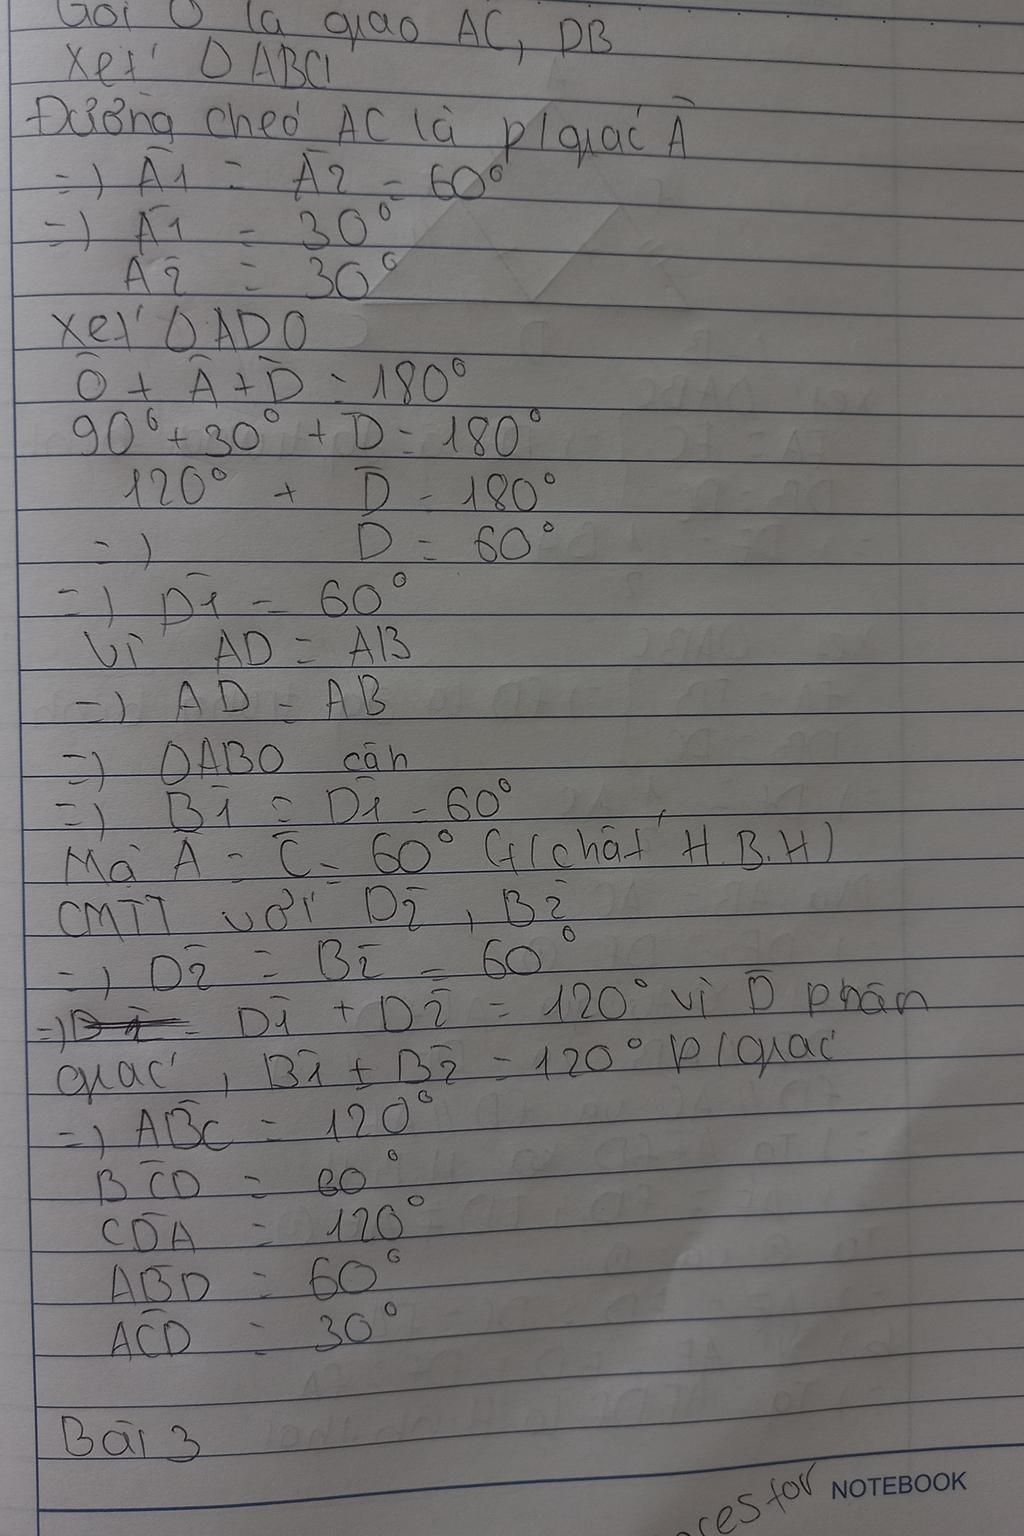 Gọi O là giao AC, DB
Xét Δ ABCD
Đường chéo AC là p/giác Â
=) Â1 = Â2 = 60°
=) Â1 = 30°
Â2 = 30°
Xét Δ ADO
Ô + Â + D̂ = 180°
90° + 30° + D̂ = 180°
120° + D̂ = 180°
=) D̂ = 60°
=) D̂1 = 60°
Vì AD = AB
=) AD = AB
=) ΔABO cân
=) B̂1 = D̂1 = 60°
Mà Â = Ĉ = 60° (t/chất H.B.H)
CMTT với D̂2, B̂2
=) D̂2 = B̂2 = 60°
=) D̂1 + D̂2 = 120° vì D̂ phân
giác, B̂1 + B̂2 = 120° p/giác
=) AB̂C = 120°
BĈD = 60°
CD̂A = 120°
AB̂D = 60°
AĈD = 30°
Bài 3
NOTEBOOK